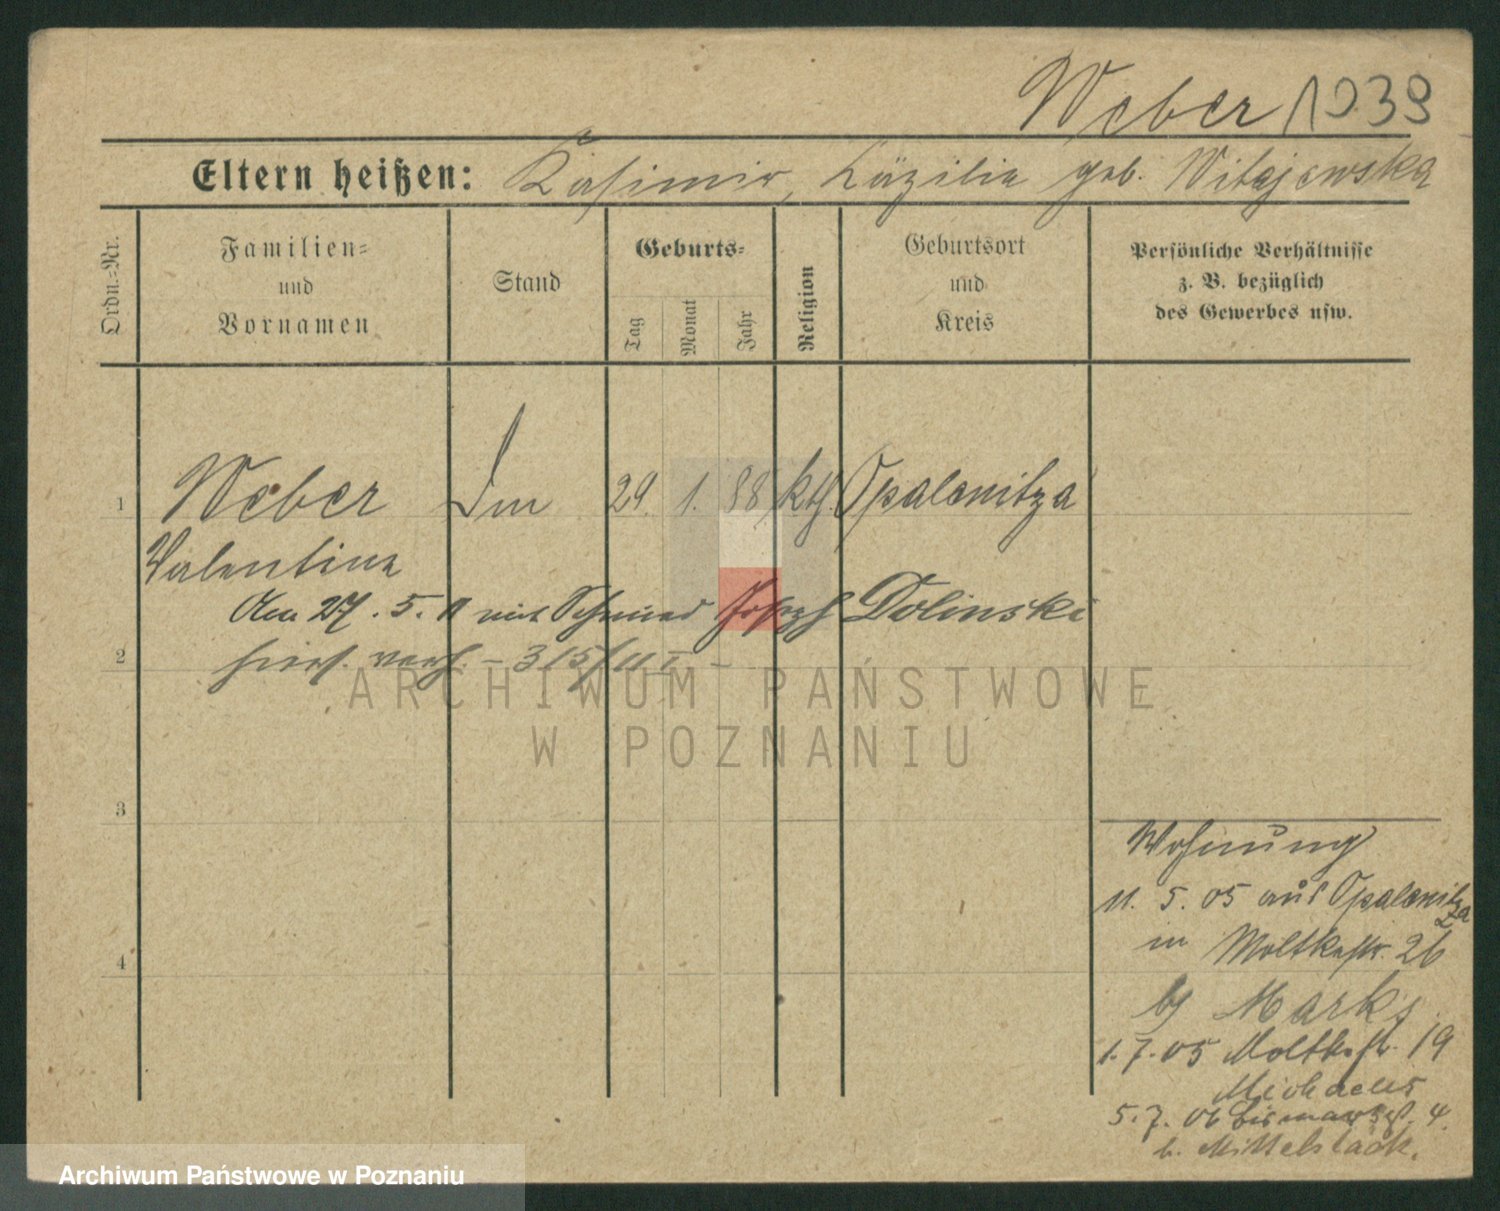 Weber 1039
Eltern heißen: Kasimir, Cäzilie geb. Witajewska
Ordn.=Nr.
Familien=
und
Vornamen
Stand
Geburts=
Tag
Monat
Jahr
Religion
Geburtsort
und
Kreis
Persönliche Verhältnisse
z. B. bezüglich
des Gewerbes usw.
1 Weber 29. 1. 88 kth. Opalenitza
Valentine
Am 27. 5. 11 mit Schmied Joseph Dolinski
2 hier verh. – 315/11 I –
3
4
Wohnung
11. 5. 05 aus Opalenitza
in Moltkestr. 26
b/ Marks
1. 7. 05 Moltkestr. 19
Michaelis
5. 7. 06 Bismarckst. 4
b. Mittelstädt.
ARCHIWUM PAŃSTWOWE
W POZNANIU
Archiwum Państwowe w Poznaniu